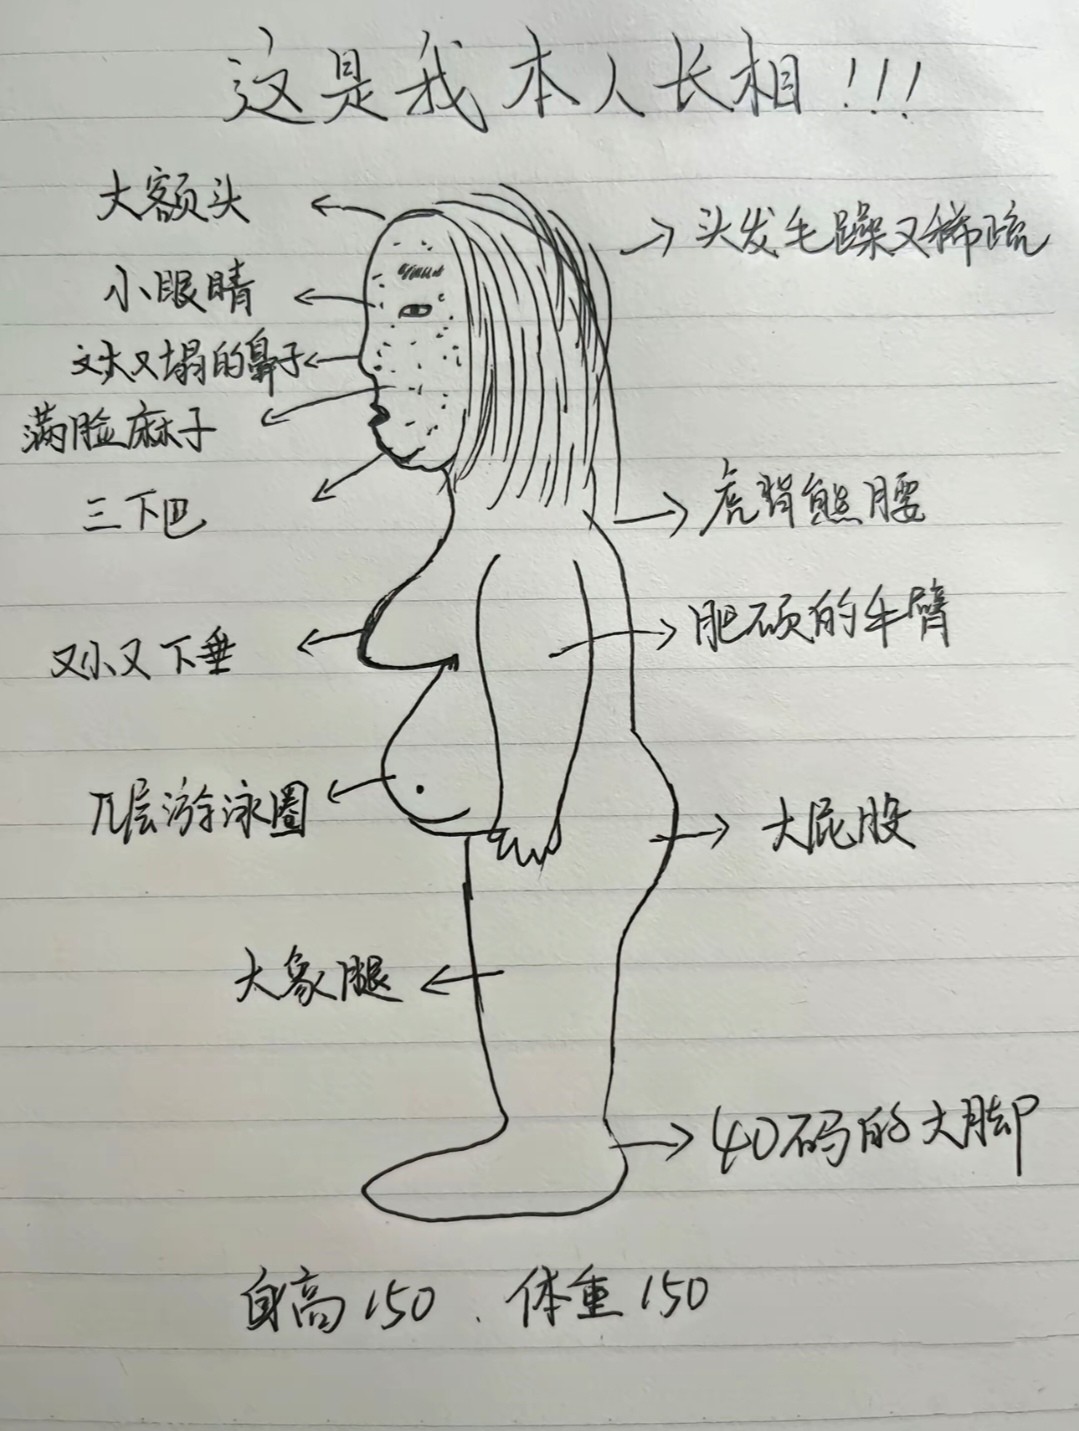 这是我本人长相!!!
大额头
头发毛躁又稀疏
小眼睛
又大又塌的鼻子
满脸麻子
三下巴
虎背熊腰
肥硕的手臂
又小又下垂
几层游泳圈
大屁股
大象腿
40码的大脚
身高150、体重150